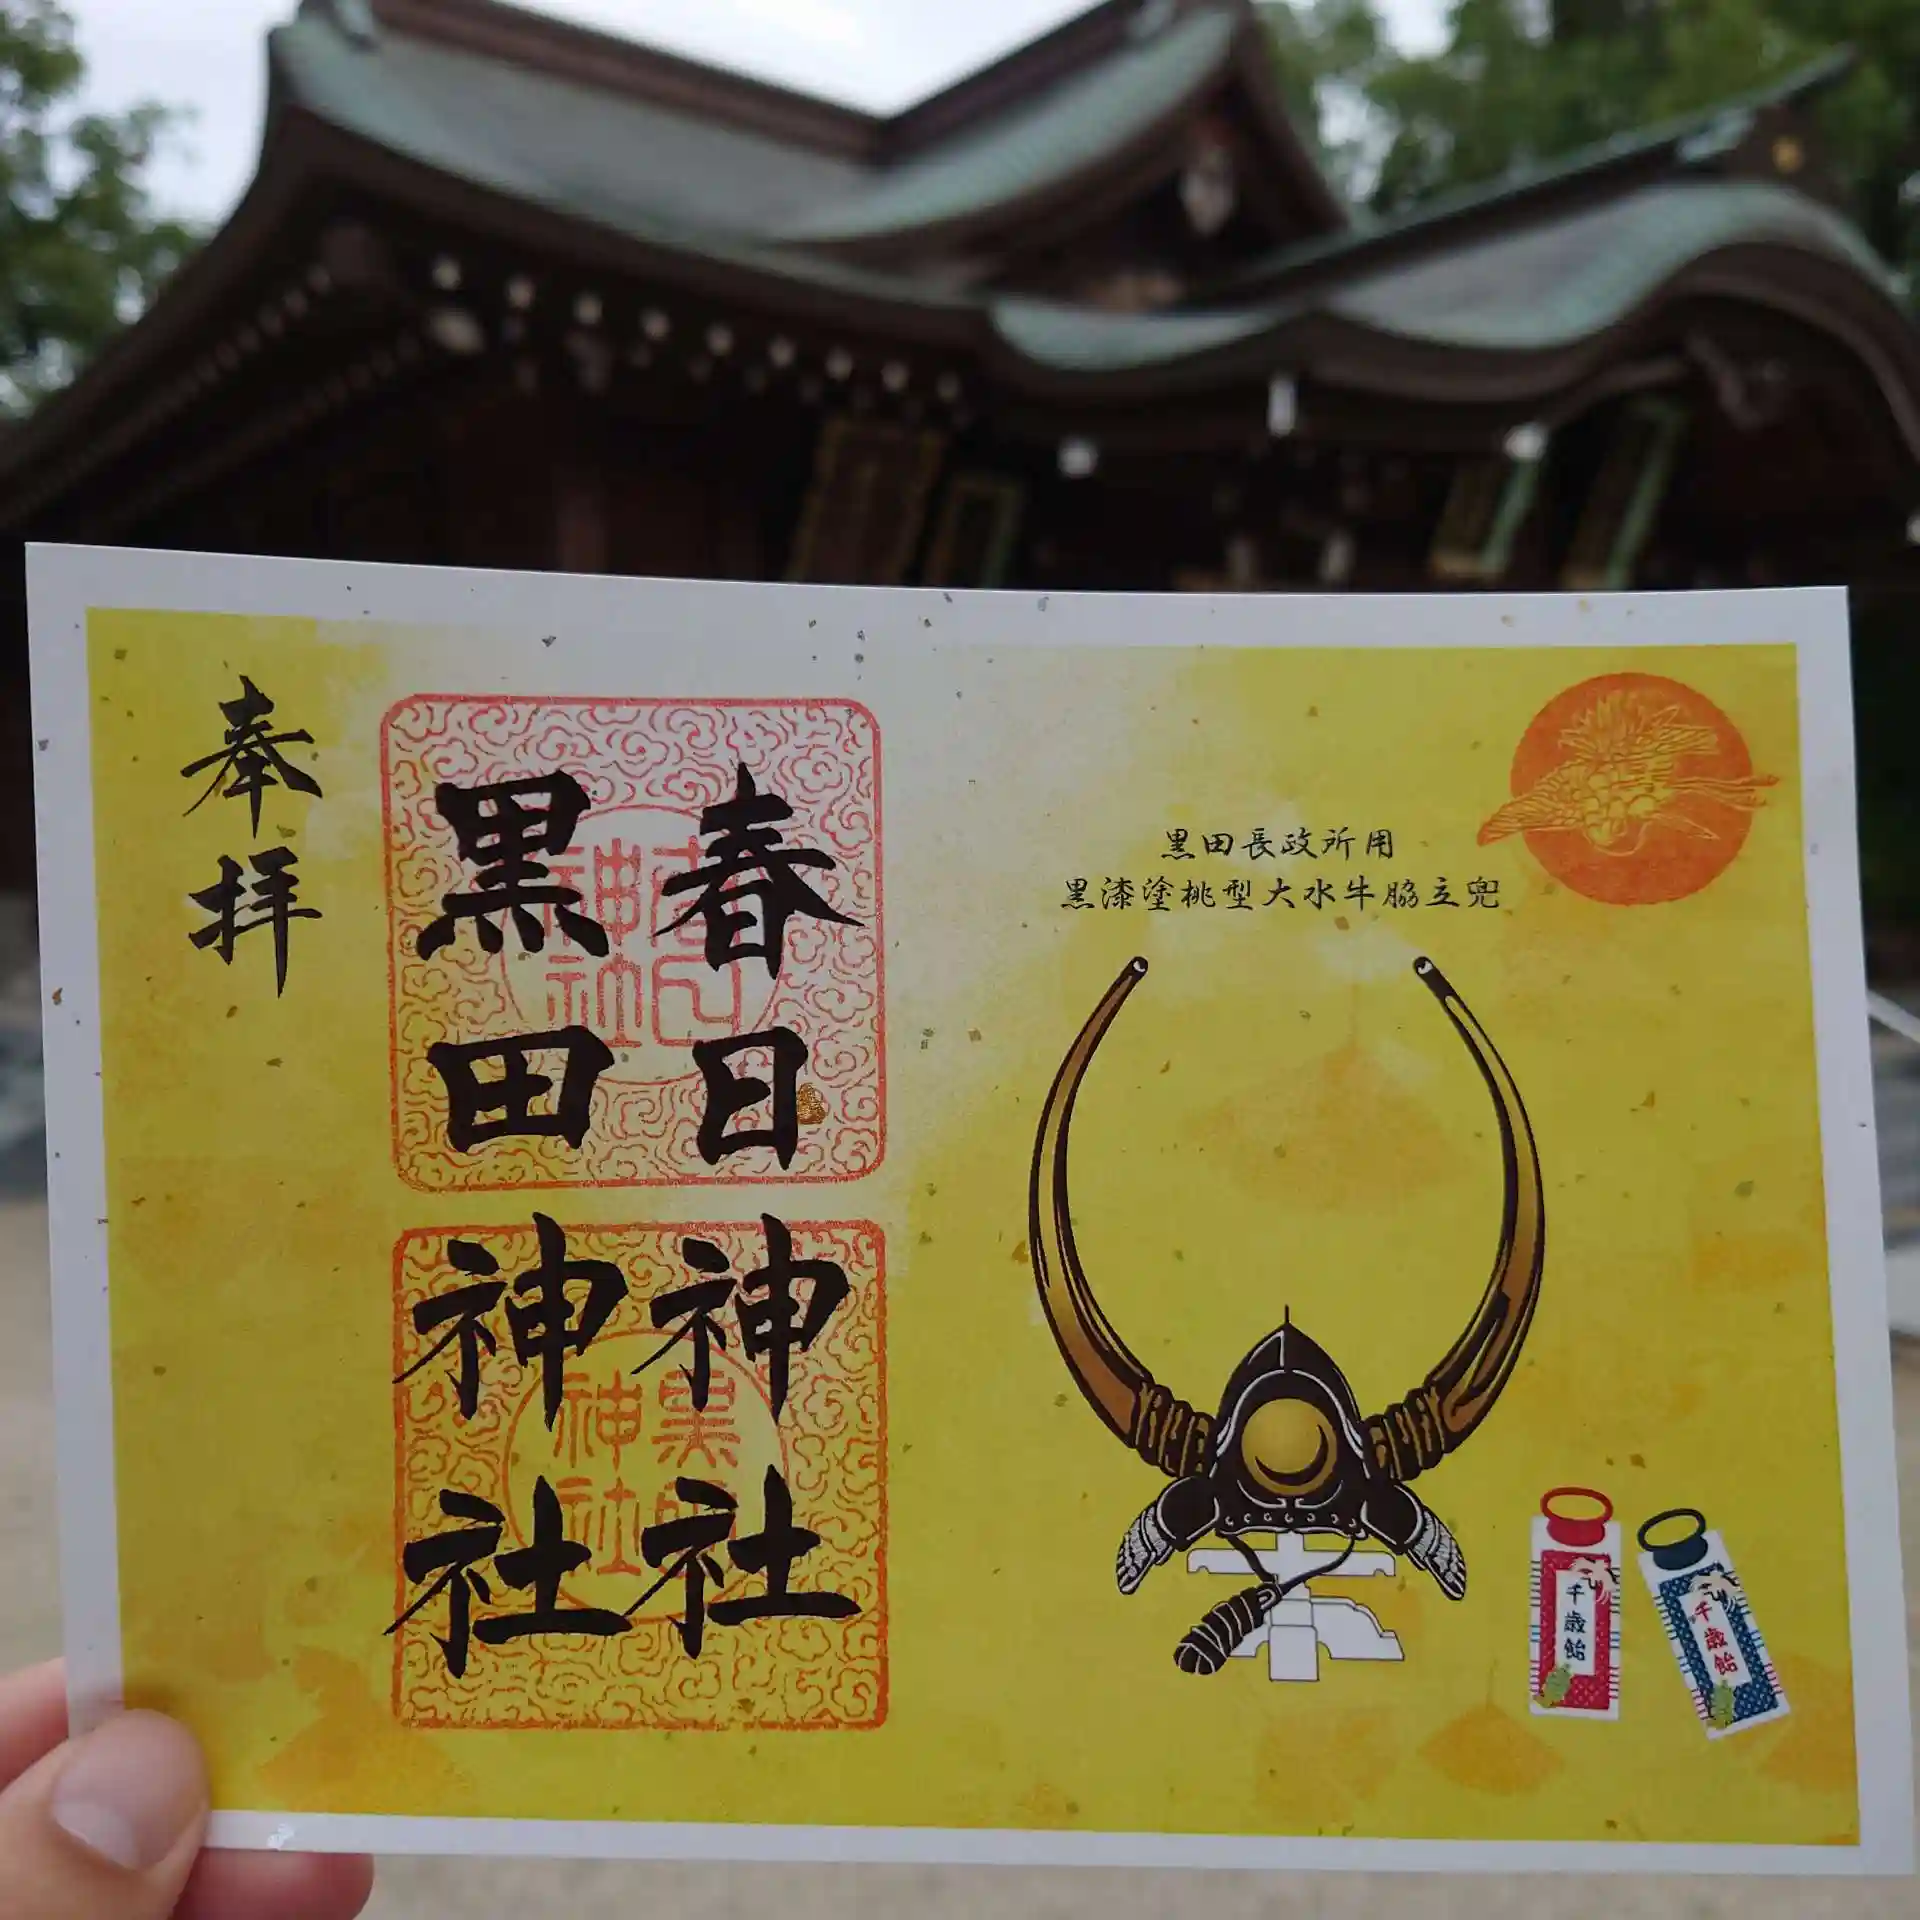 奉拝
春日神社
黒田神社
春日神社
黒田神社
黒田長政所用
黒漆塗桃型大水牛脇立兜
千歳飴
千歳飴